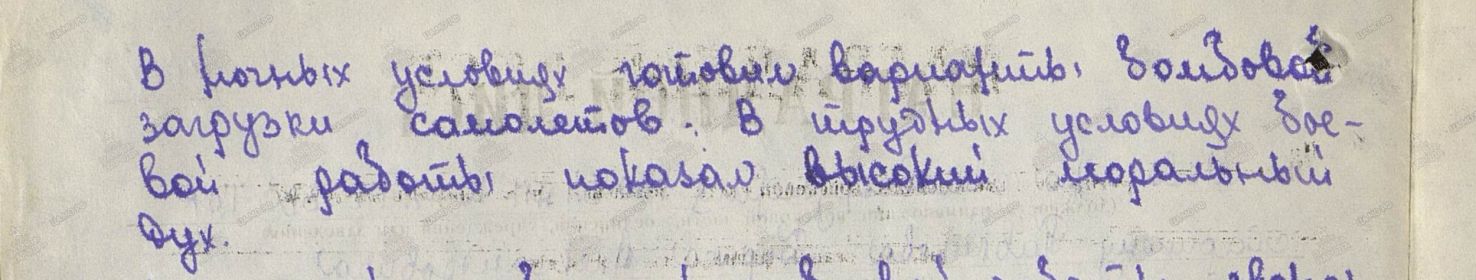 В ночных условиях готовил варианты бомбовой
загрузки самолетов. В трудных условиях бое-
вой работы показал высокий моральный
дух.